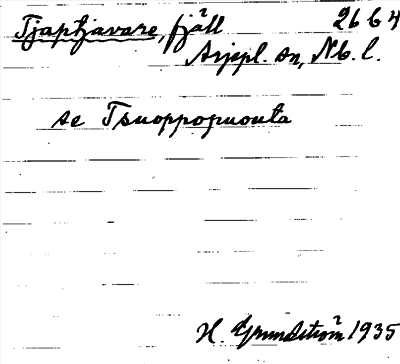 Tjaptjavare, fjäll 26 G 4
Arjepl. sn, Nb. l.
se Tsuoppopuouta
H. Grundström 1935